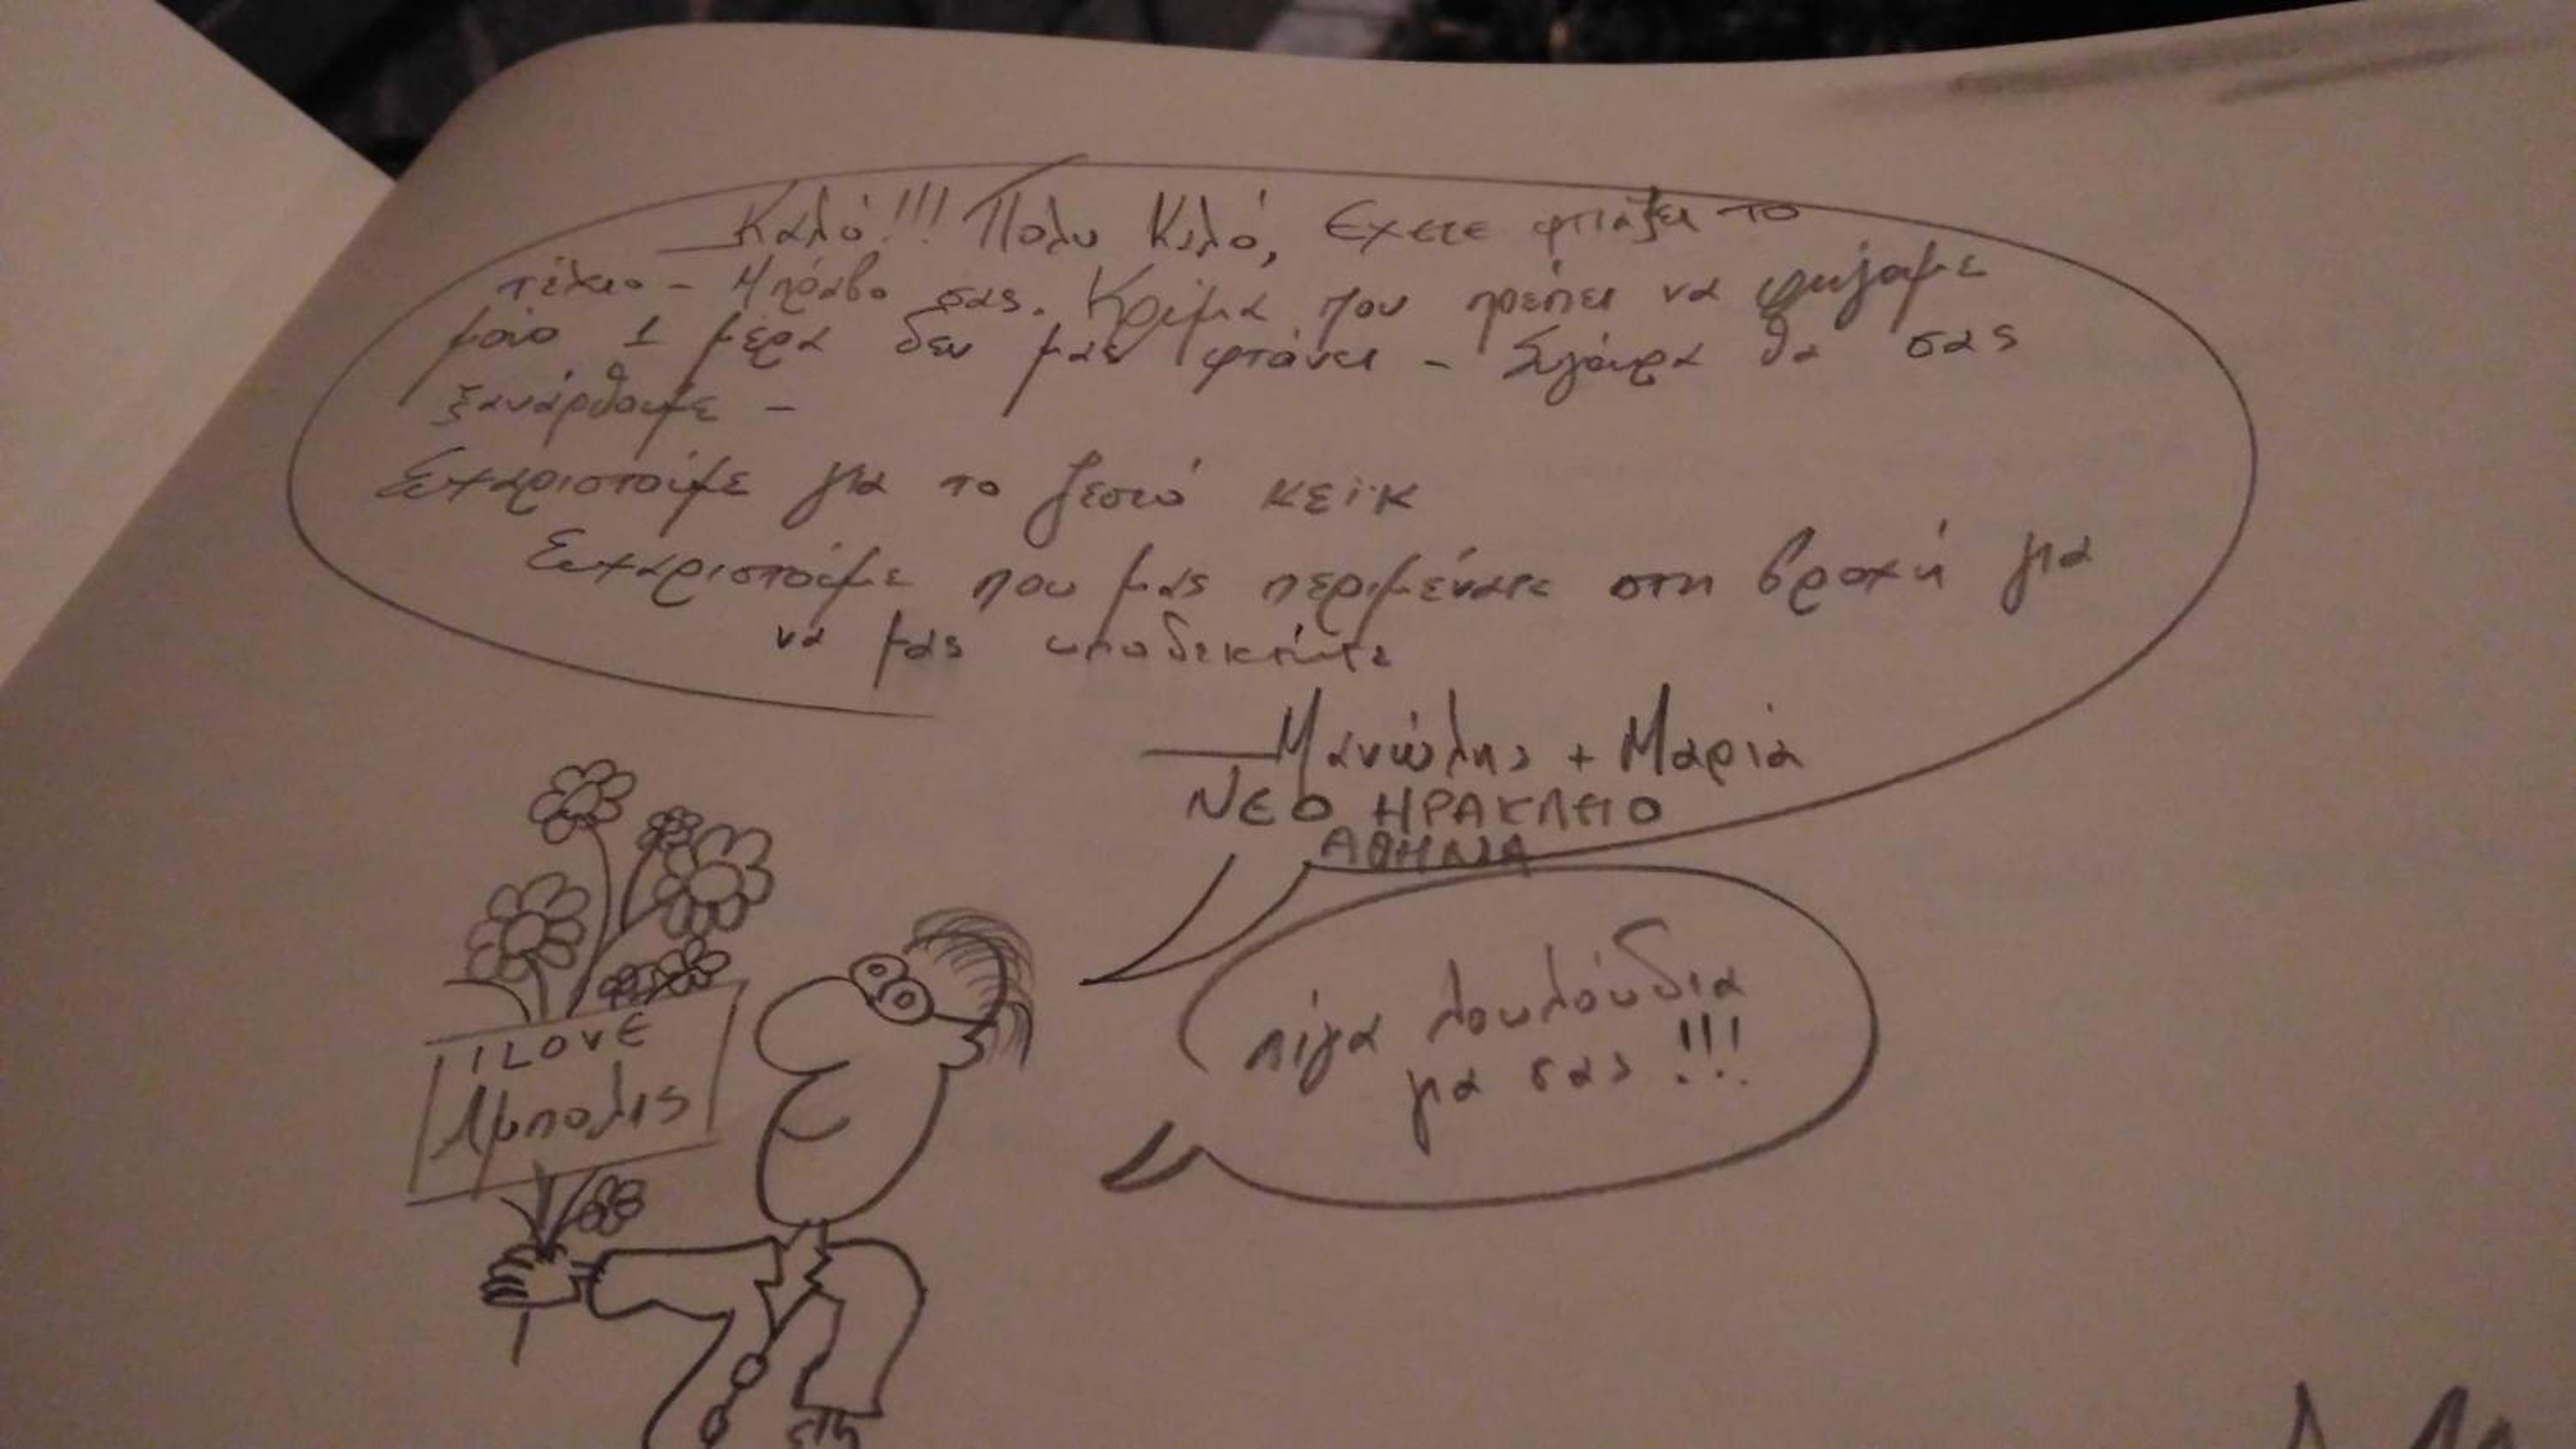 Καλό!!! Πολυ Καλό, Εχετε φτιάξει το
τέλειο - Μπράβο σας. Κρίμα που πρέπει να φύγουμε
μονο 1 μέρα δεν μας φτάνει - Σιγόυρα θα σας
ξανάρθουμε -
Ευχαριστούμε για το ζεστό κεϊκ
Ευχαριστούμε που μας περιμένατε στη βροχή για
να μας υποδεκτήτε
Μανώλης + Μαρία
ΝΕΟ ΗΡΑΚΛΕΙΟ
ΑΘΗΝΑ
πίγα λουλούδια
για σας!!!
I LOVE